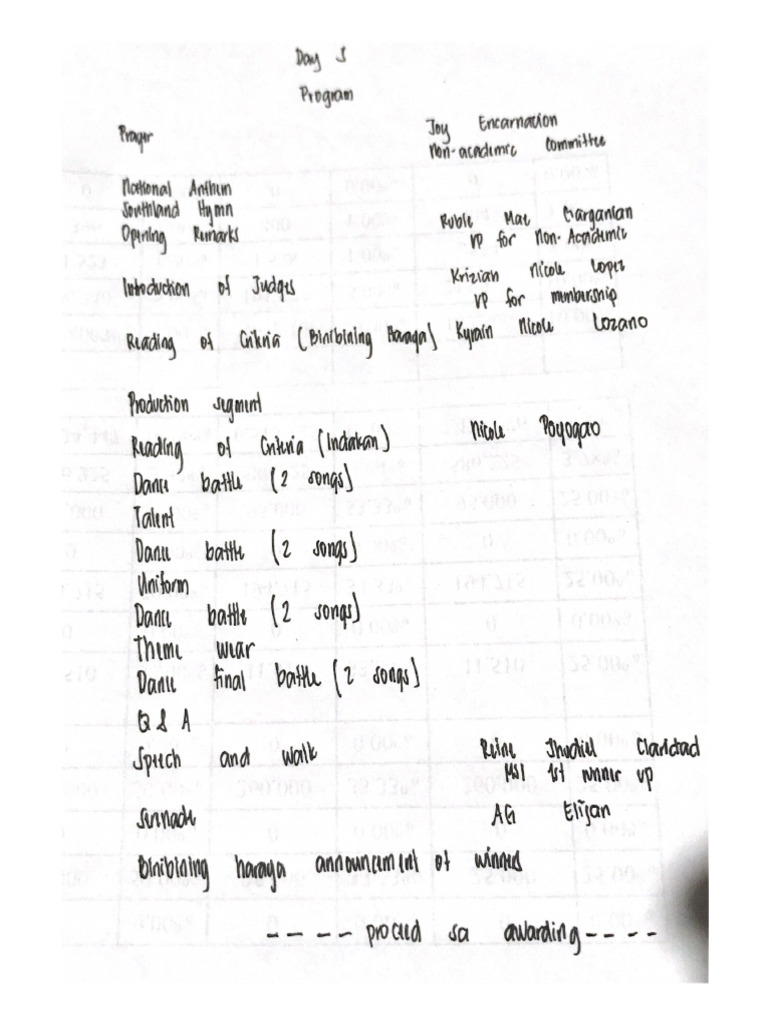 Day 3
Program
Prayer Joy Encarnacion
Non-academic Committee
National Anthem
Southland Hymn
Opening Remarks Ruble Mae
VP for Non-Academic
Introduction of Judges Krizian Nicole Lopez
VP for membership
Reading of Criteria (Binibining Haraya) Nicole Lozano
Production segment
Reading of Criteria (Indakan) Nicole Poyogao
Dance battle (2 songs)
Talent
Dance battle (2 songs)
Uniform
Dance battle (2 songs)
Theme wear
Dance final battle (2 songs)
Q & A
Speech and walk Reine Claridad
1st winner VP
Serenade AG Elijan
Binibining haraya announcement of winners
---- proceed sa awarding ----